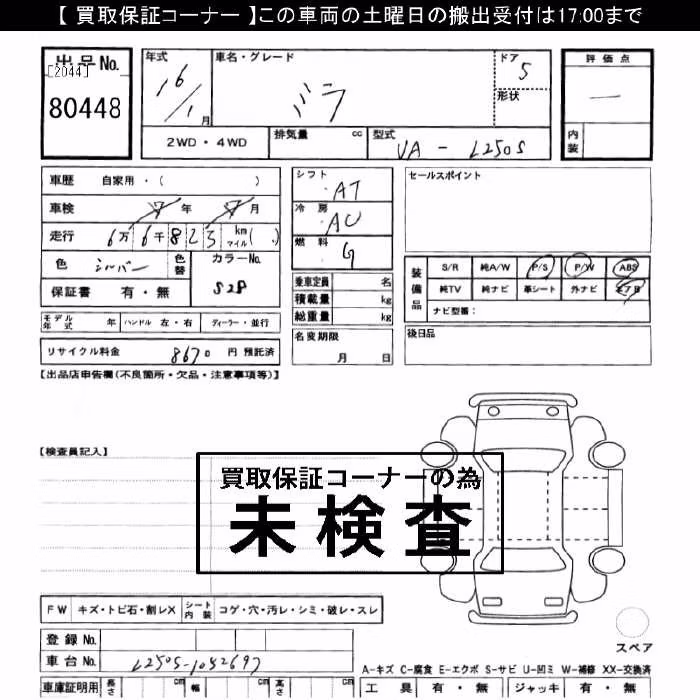 【 買取保証コーナー 】この車両の土曜日の搬出受付は17:00まで
出品No.
[2044]
80448
年式
16/1月
車名・グレード
ミラ
ドア
5
形状
評価点
―
内装
2WD・4WD
排気量 cc
型式
UA - L250S
車歴 自家用・( )
車検 年 月
走行 6万6千823 km マイル( )
色 シルバー
色替
カラーNo.
S28
保証書 有・無
シフト
AT
冷房
AC
燃料
G
乗車定員 名
積載量 kg
総重量 kg
セールスポイント
装備品
S/R 純A/W P/S P/W ABS
純TV 純ナビ 革シート 外ナビ エアB
ナビ型番:
モデル年式 年 ハンドル 左・右 ディーラー・並行
リサイクル料金 8670 円 預託済
名変期限
月 日
後日品
【出品店申告欄(不良箇所・欠品・注意事項等)】
【検査員記入】
買取保証コーナーの為
未検査
FW キズ・トビ石・割レX シート内装 コゲ・穴・汚レ・シミ・破レ・スレ
スペア
登録No.
車台No. L250S-1052697
A-キズ C-腐食 E-エクボ S-サビ U-凹ミ W-補修 XX-交換済
車庫証明用 長さ cm 幅 cm 高さ cm
工具 有・無 ジャッキ 有・無